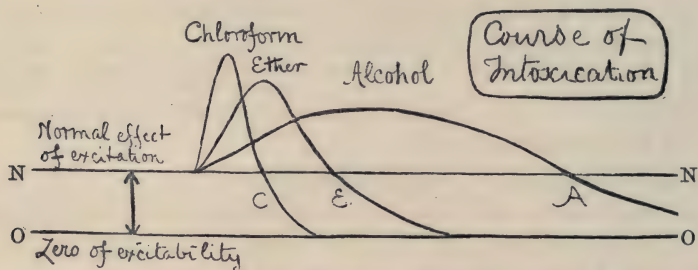 Chloroform
Ether
Alcohol
Course of
Intoxication
Normal effect
of excitation
N
N
C
E.
A
O
Zero of excitability
O